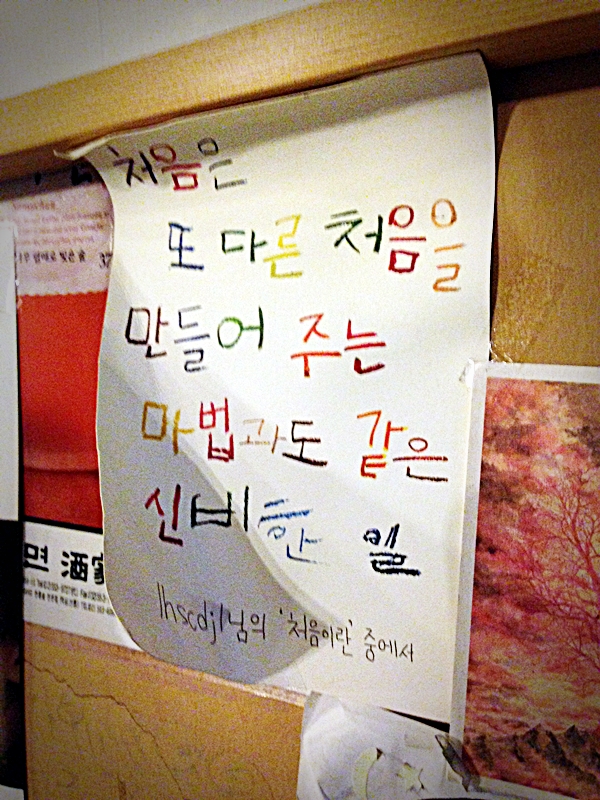 처음은
또 다른 처음을
만들어 주는
마법과도 같은
신비한 일
lhscdj1님의 '처음이란' 중에서
37
면 酒家